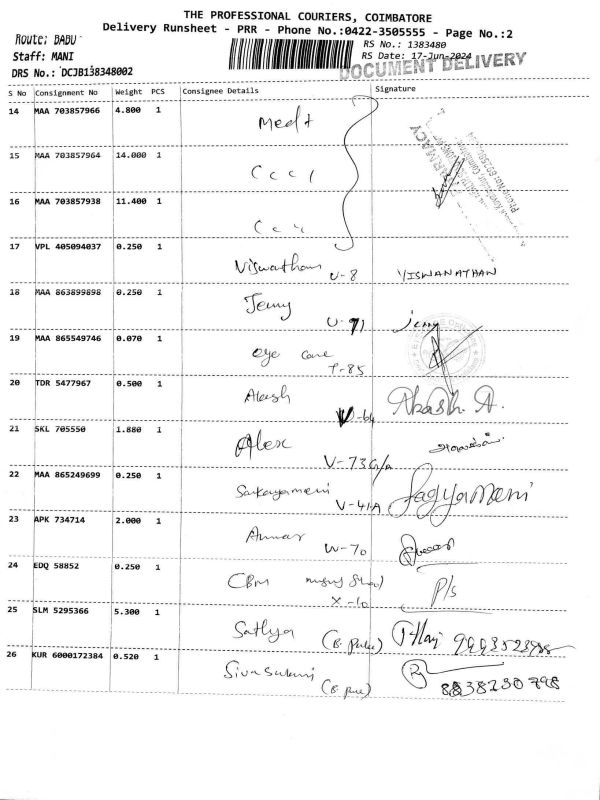 THE PROFESSIONAL COURIERS, COIMBATORE
Delivery Runsheet - PRR - Phone No.:0422-3505555 - Page No.:2
Route: BABU
RS No.: 1383480
Staff: MANI
RS Date: 17-Jun-2024
DOCUMENT DELIVERY
DRS No.: DCJB138348002
S No Consignment No Weight PCS Consignee Details Signature
14 MAA 703857966 4.800 1 Med+
PHARMACY
15 MAA 703857964 14.000 1
16 MAA 703857938 11.400 1
17 VPL 405094037 0.250 1 Viswatham U-8 VISWANATHAN
18 MAA 863899898 0.250 1 Jenny U-71 jeny
19 MAA 865549746 0.070 1 eye care T-85
20 TDR 5477967 0.500 1 Akash V-64 Akash. A.
21 SKL 705550 1.880 1 Alex V-73 G/A
22 MAA 865249699 0.250 1 V-41A
23 APK 734714 2.000 1 W-70
24 EDQ 58852 0.250 1 CBM X-10 P/s
25 SLM 5295366 5.300 1 Sathya
26 KUR 6000172384 0.520 1 8838230798